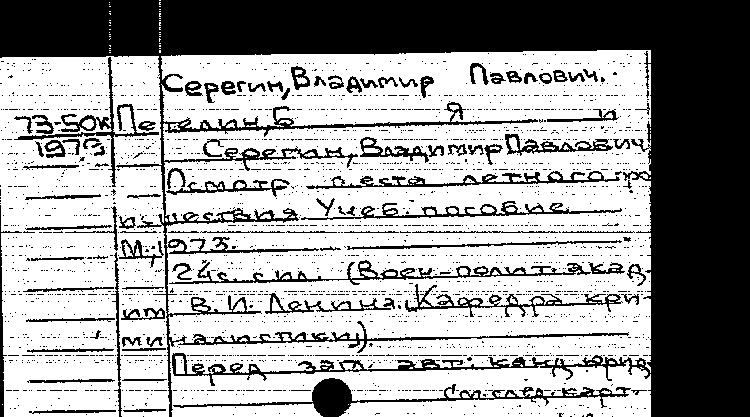 Серегин, Владимир Павлович.
73-50к Петелин, Б Я и
1973 Серегин, Владимир Павлович
Осмотр места летного про
исшествия Учеб. пособие
М., 1973.
24с. с ил. (Воен-полит. акад.
им В. И. Ленина. Кафедра кри-
миналистики).
Перед загл. авт: канд юрид
См. след. карт.